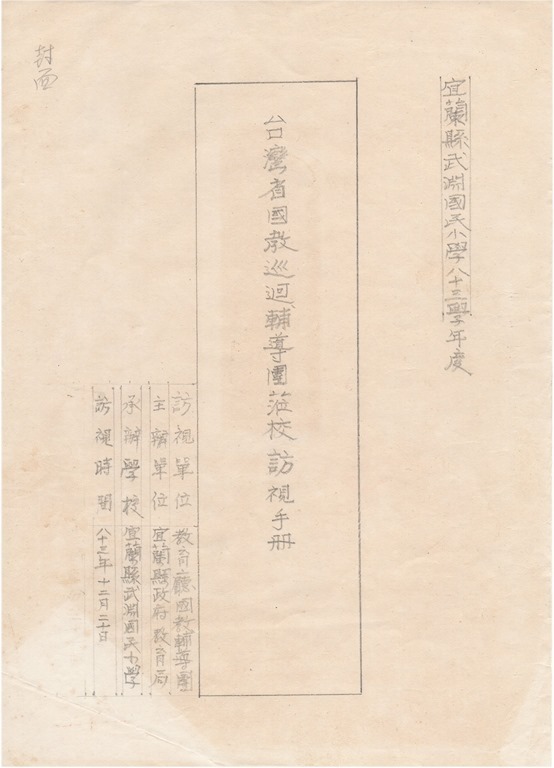 封面
宜蘭縣武淵國民小學八十三學年度
台灣省國教巡迴輔導團蒞校訪視手冊
訪視單位 教育廳國教輔導團
主辦單位 宜蘭縣政府教育局
承辦學校 宜蘭縣武淵國民小學
訪視時間 八十三年十二月二十日